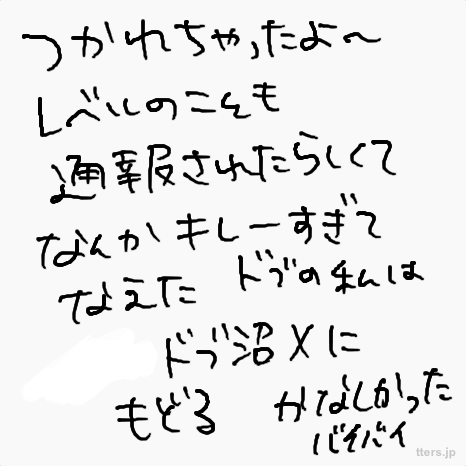 つかれちゃったよ～
レベルのことも
通報されたらしくて
なんかキレーすぎて
なえた ドブの私は
ドブ沼Xに
もどる かなしかった
バイバイ
tters.jp